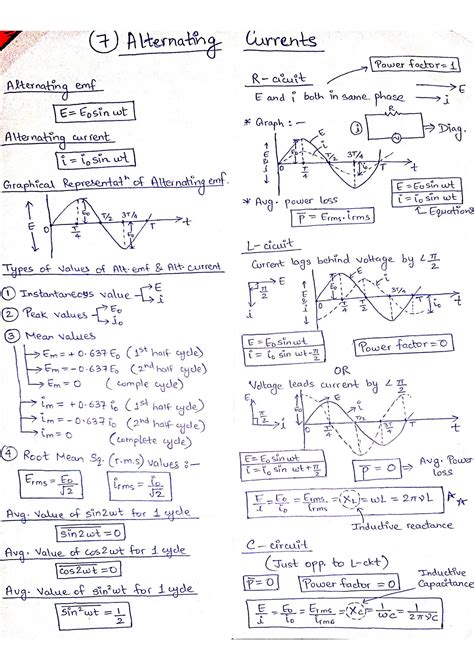 ⑦ Alternating Currents
Alternating emf
E = E₀ sin wt
Alternating current
i = i₀ sin wt
Graphical Representatⁿ of Alternating emf.
E
E₀
0
T/4
T/2
3T/4
T
t
Types of values of Alt. emf & Alt. current
① Instantaneous value → E
i
② Peak values → E₀
i₀
③ Mean values
→ Em = + 0.637 E₀ (1st half cycle)
→ Em = - 0.637 E₀ (2nd half cycle)
→ Em = 0 (comple cycle)
→ im = + 0.637 i₀ (1st half cycle)
→ im = - 0.637 i₀ (2nd half cycle)
→ im = 0 (complete cycle)
④ Root Mean Sq. (r.m.s) values :-
Erms = E₀/√2
irms = i₀/√2
Avg. value of sin2wt for 1 cycle
sin2wt = 0
Avg. Value of cos2wt for 1 cycle
cos2wt = 0
Avg. Value of sin²wt for 1 cycle
sin²wt = 1/2
Power factor = 1
R - cicuit
E and i both in same phase → E
→ i
* Graph :-
E
i
E₀
0
T/4
3T/4
T
t
R
① → Diag.
E = E₀ sin wt
i = i₀ sin wt
Equations
* Avg. power loss
P = Erms . irms
L - cicuit
Current lags behind voltage by ∠ π/2
E
π/2
i
E
i
E₀
0
T/4
T/2
3T/4
T
t
i₀
E = E₀ sin wt
i = i₀ sin wt - π/2
Power factor = 0
OR
Voltage leads current by ∠ π/2
E
π/2
i
E
i
0
T/4
T/2
3T/4
T
t
E = E₀ sin wt
i = i₀ sin wt + π/2
P = 0 → Avg. Power loss
E/i = E₀/i₀ = Erms/irms = (XL) = wL = 2πνL
Inductive reactance
C - circuit
(Just opp. to L-ckt)
P = 0
Power factor = 0
Inductive Capacitance
E/i = E₀/i₀ = Erms/irms = (Xc) = 1/wc = 1/2πνC